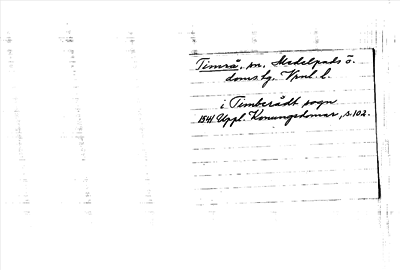 Timrå, sn. Medelpads ö.
doms.bg. Vnl l.
i Timberådt sogn
1541 Uppl. Konungsdomar, s. 102.